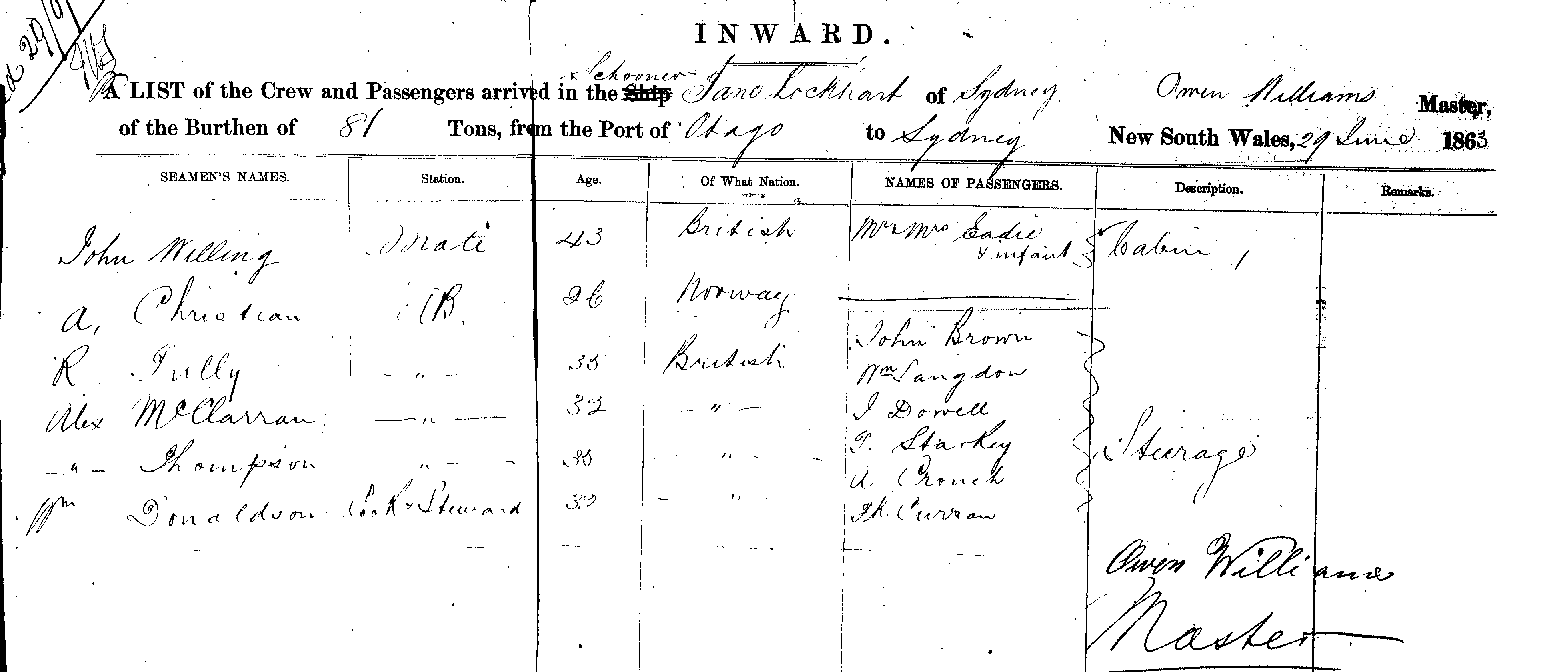 INWARD.
A LIST of the Crew and Passengers arrived in the Ship Schooner Jane Lockhart of Sydney Owen Williams Master,
of the Burthen of 81 Tons, from the Port of Otago to Sydney New South Wales, 29 June 1863
SEAMEN'S NAMES. Station. Age. Of What Nation. NAMES OF PASSENGERS. Description. Remarks.
John Willing Mate 43 British Mr & Mrs Eadie
& infant Cabin
A, Christian AB. 26 Norway
John Brown
R Tully - " - 35 British Wm Langdon
Alex McClarran - " - 32 - " - J Dowell
- " - Thompson " - - " - T. Starkey Steerage
A Crouch
Wm Donaldson Cook & Steward - " Pk Curran
Owen Williams
Master